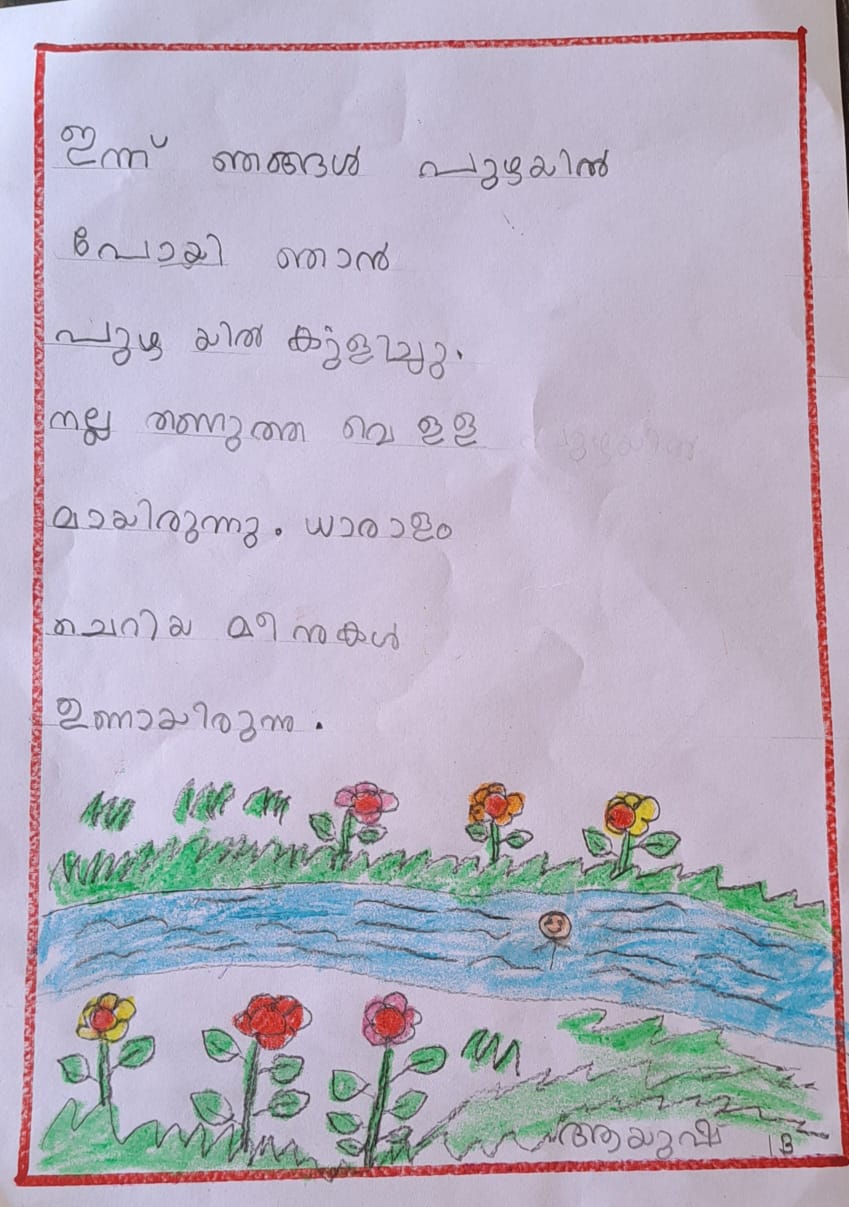 ഇന്ന് ഞങ്ങൾ പുഴയിൽ
പോയി ഞാൻ
പുഴ യിൽ കുളിച്ചു.
നല്ല തണുത്ത വെ ളള
മായിരുന്നു. ധാരാളം
ചെറിയ മീനുകൾ
ഉണ്ടായിരുന്നു.
ആയുഷ് 1B